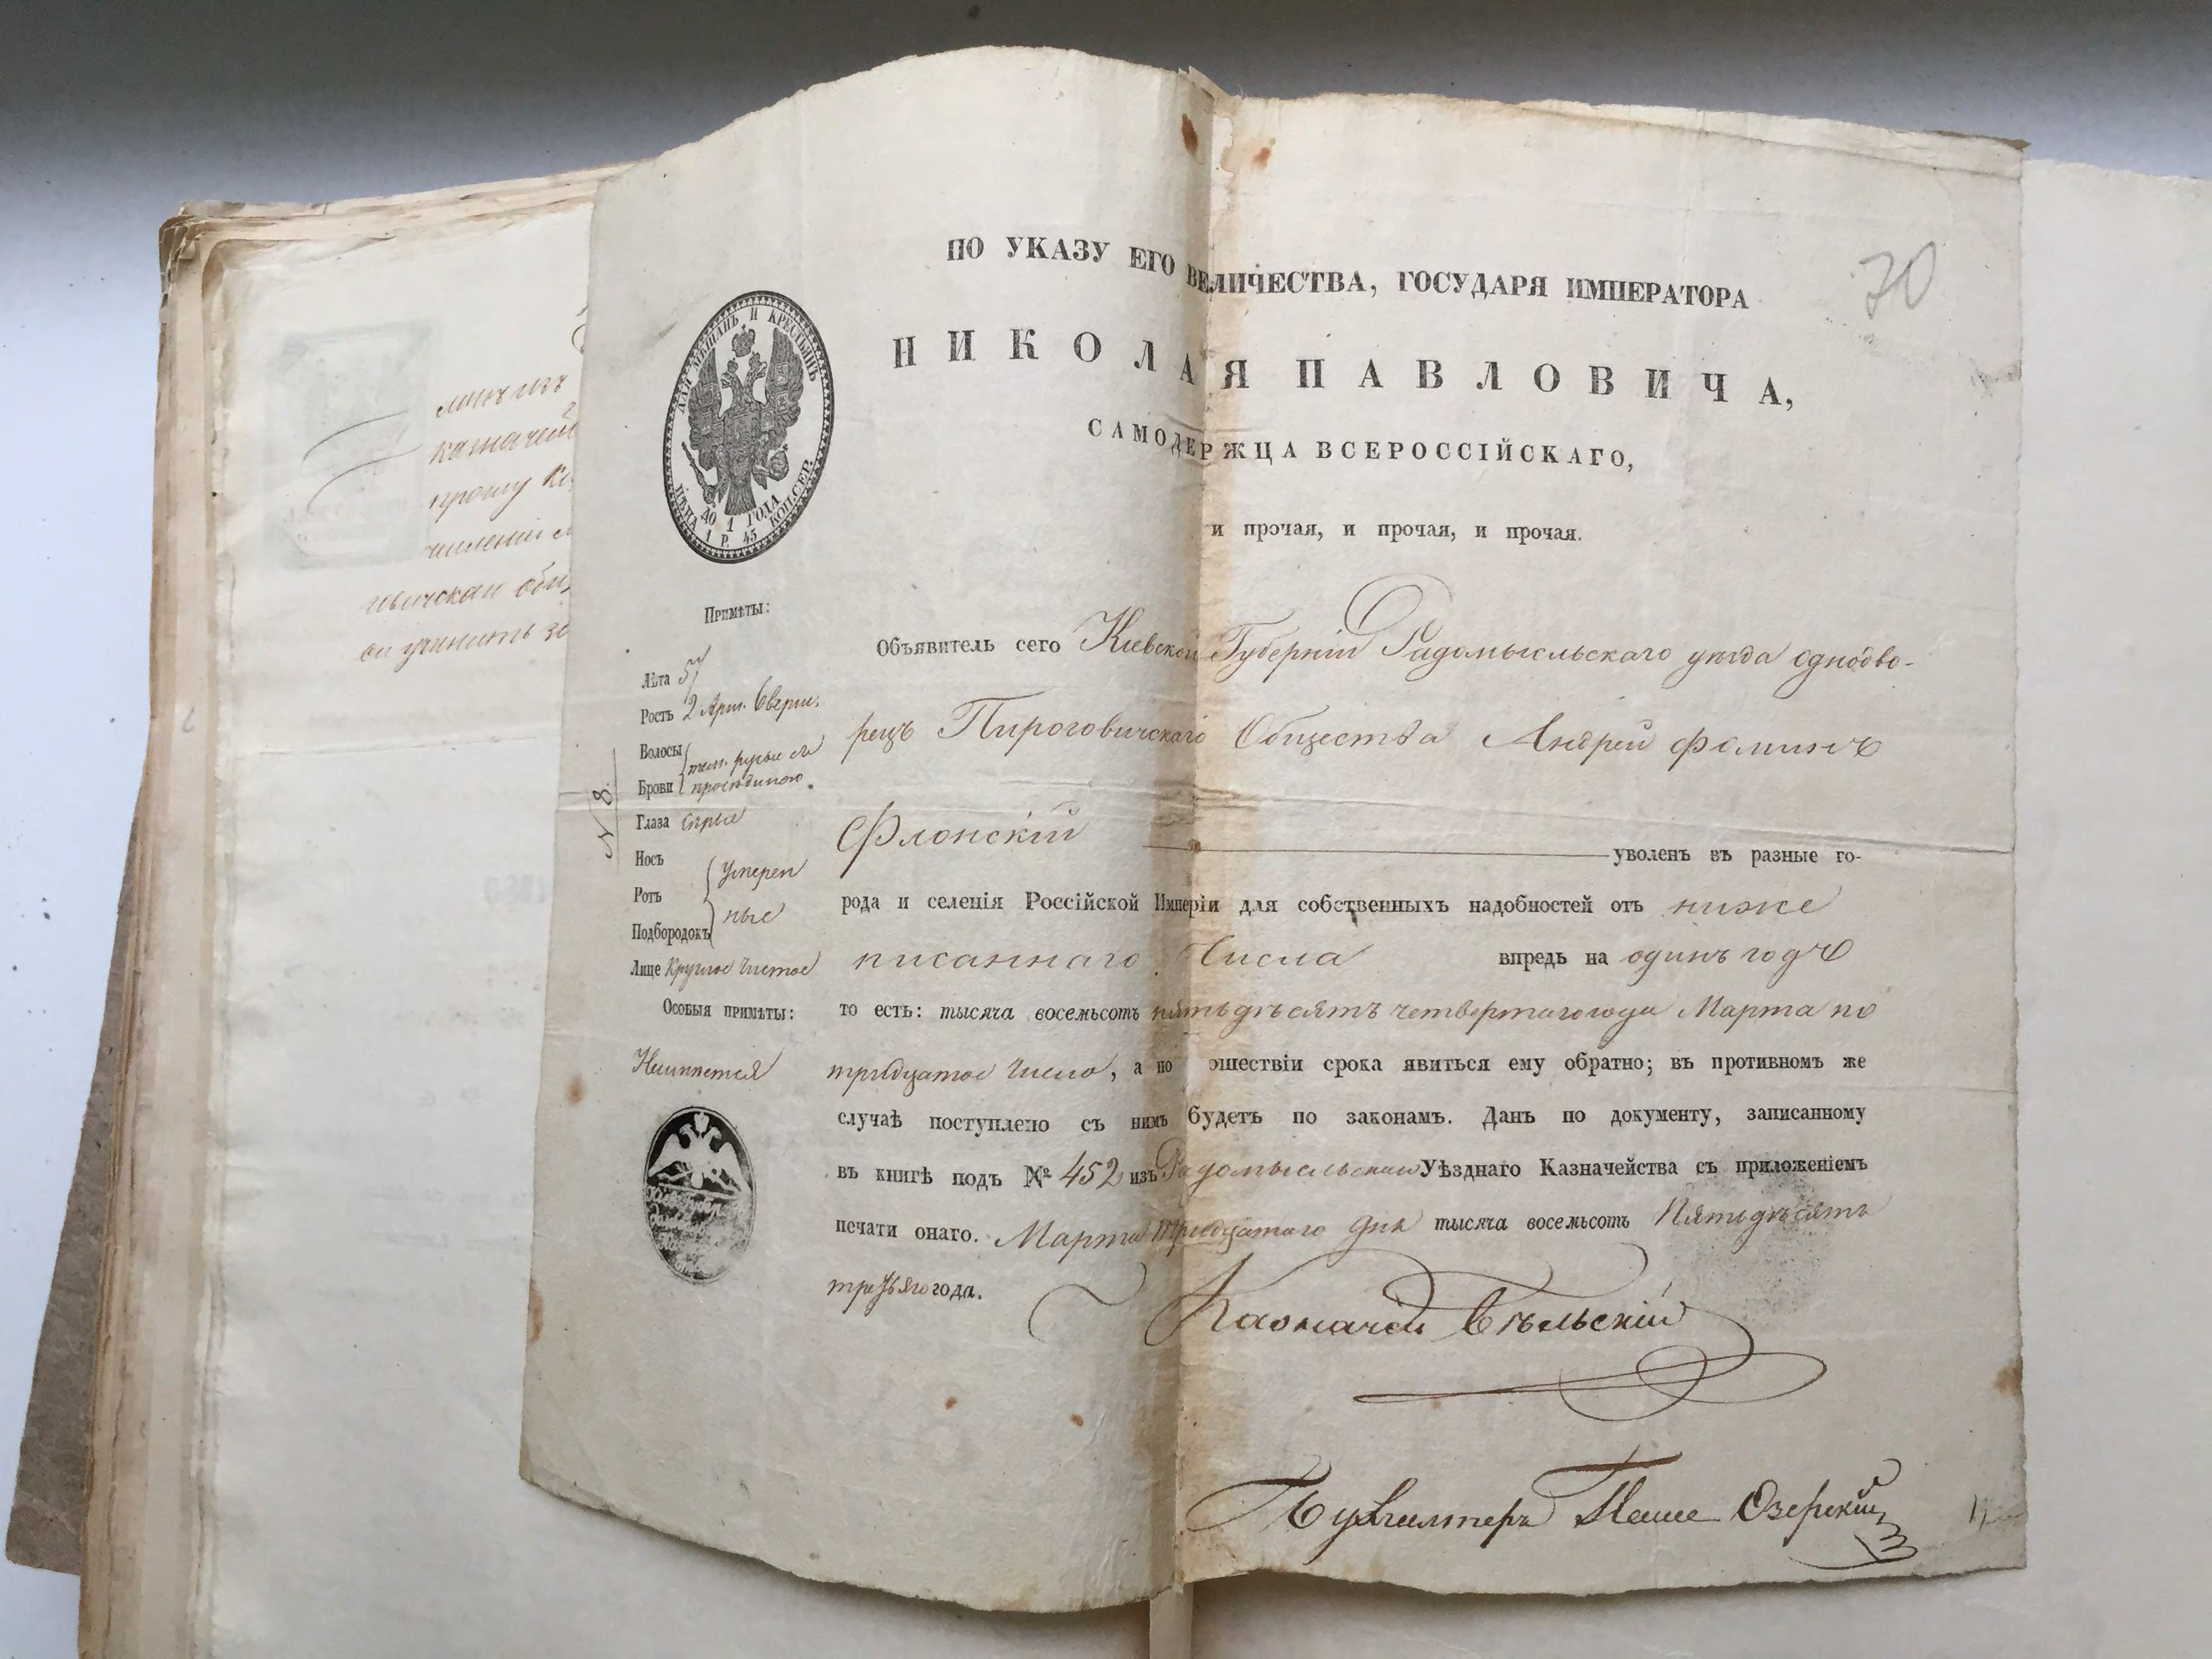 70
ПО УКАЗУ ЕГО ВЕЛИЧЕСТВА, ГОСУДАРЯ ИМПЕРАТОРА
НИКОЛАЯ ПАВЛОВИЧА,
САМОДЕРЖЦА ВСЕРОССІЙСКАГО,
и прочая, и прочая, и прочая.
ДЛЯ МѢЩАНЪ И КРЕСТЬЯНЪ
ДО 1 ГОДА
ЦѢНА 1 Р. 45 КОП. СЕР.
Примѣты:
Лѣта 57
Ростъ 2 Арш. 6 верш.
Волосы темн. русые съ
Брови просѣдиною.
Глаза Сѣрые
Носъ
Ротъ Умерен
Подбородокъ ные
Лице Круглое Чистое
Особыя примѣты:
Неимѣется
N 8.
Объявитель сего Кіевской Губерніи Радомысльскаго уѣзда однодво-
рецъ Пироговичскаго Общества Андрей Фоминъ
Флонскій уволенъ въ разные го-
рода и селенія Россійской Имперіи для собственныхъ надобностей отъ ниже
писаннаго Числа впредь на одинъ годъ
то есть: тысяча восемьсотъ пятьдесятъ четвертаго года Марта по
тридцатое число, а по ошествіи срока явиться ему обратно; въ противномъ же
случаѣ поступлено съ нимъ будетъ по законамъ. Данъ по документу, записанному
въ книгѣ подъ № 452 изъ Радомысльскаго Уѣзднаго Казначейства съ приложеніемъ
печати онаго. Марта тридцатаго дня тысяча восемьсотъ Пятьдесятъ
третьяго года.
Казначей Бѣльскій
Бухгалтеръ Озерскій
казначей
прошу
численіи
учинить